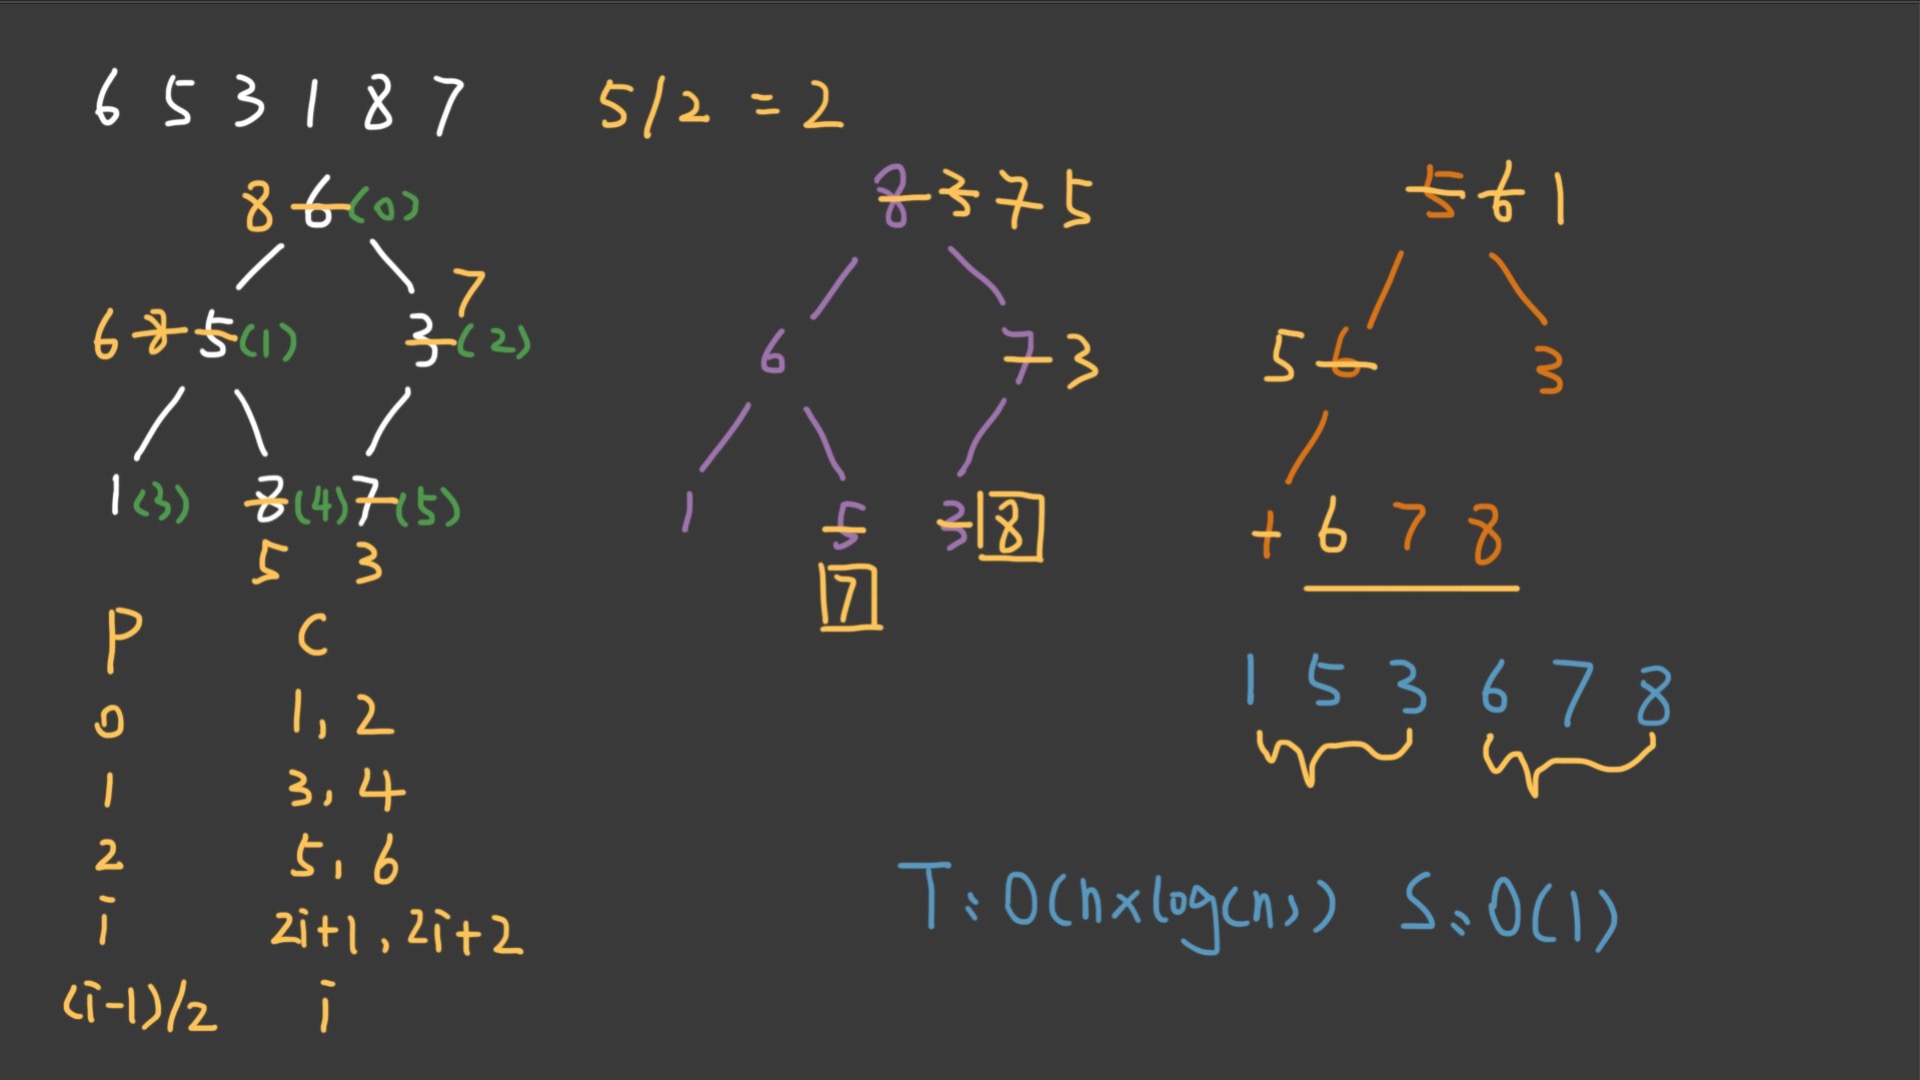 6 5 3 1 8 7
5/2 = 2
8 6 (0)
7
6 8 5 (1) 3 (2)
1 (3) 8 (4) 7 (5)
5 3
P C
0 1, 2
1 3, 4
2 5, 6
i 2i+1, 2i+2
(i-1)/2 i
8 3 7 5
6 7 3
1 5 3 8
7
5 6 1
5 6 3
1 6 7 8
1 5 3 6 7 8
T: O(n×log(n)) S: O(1)